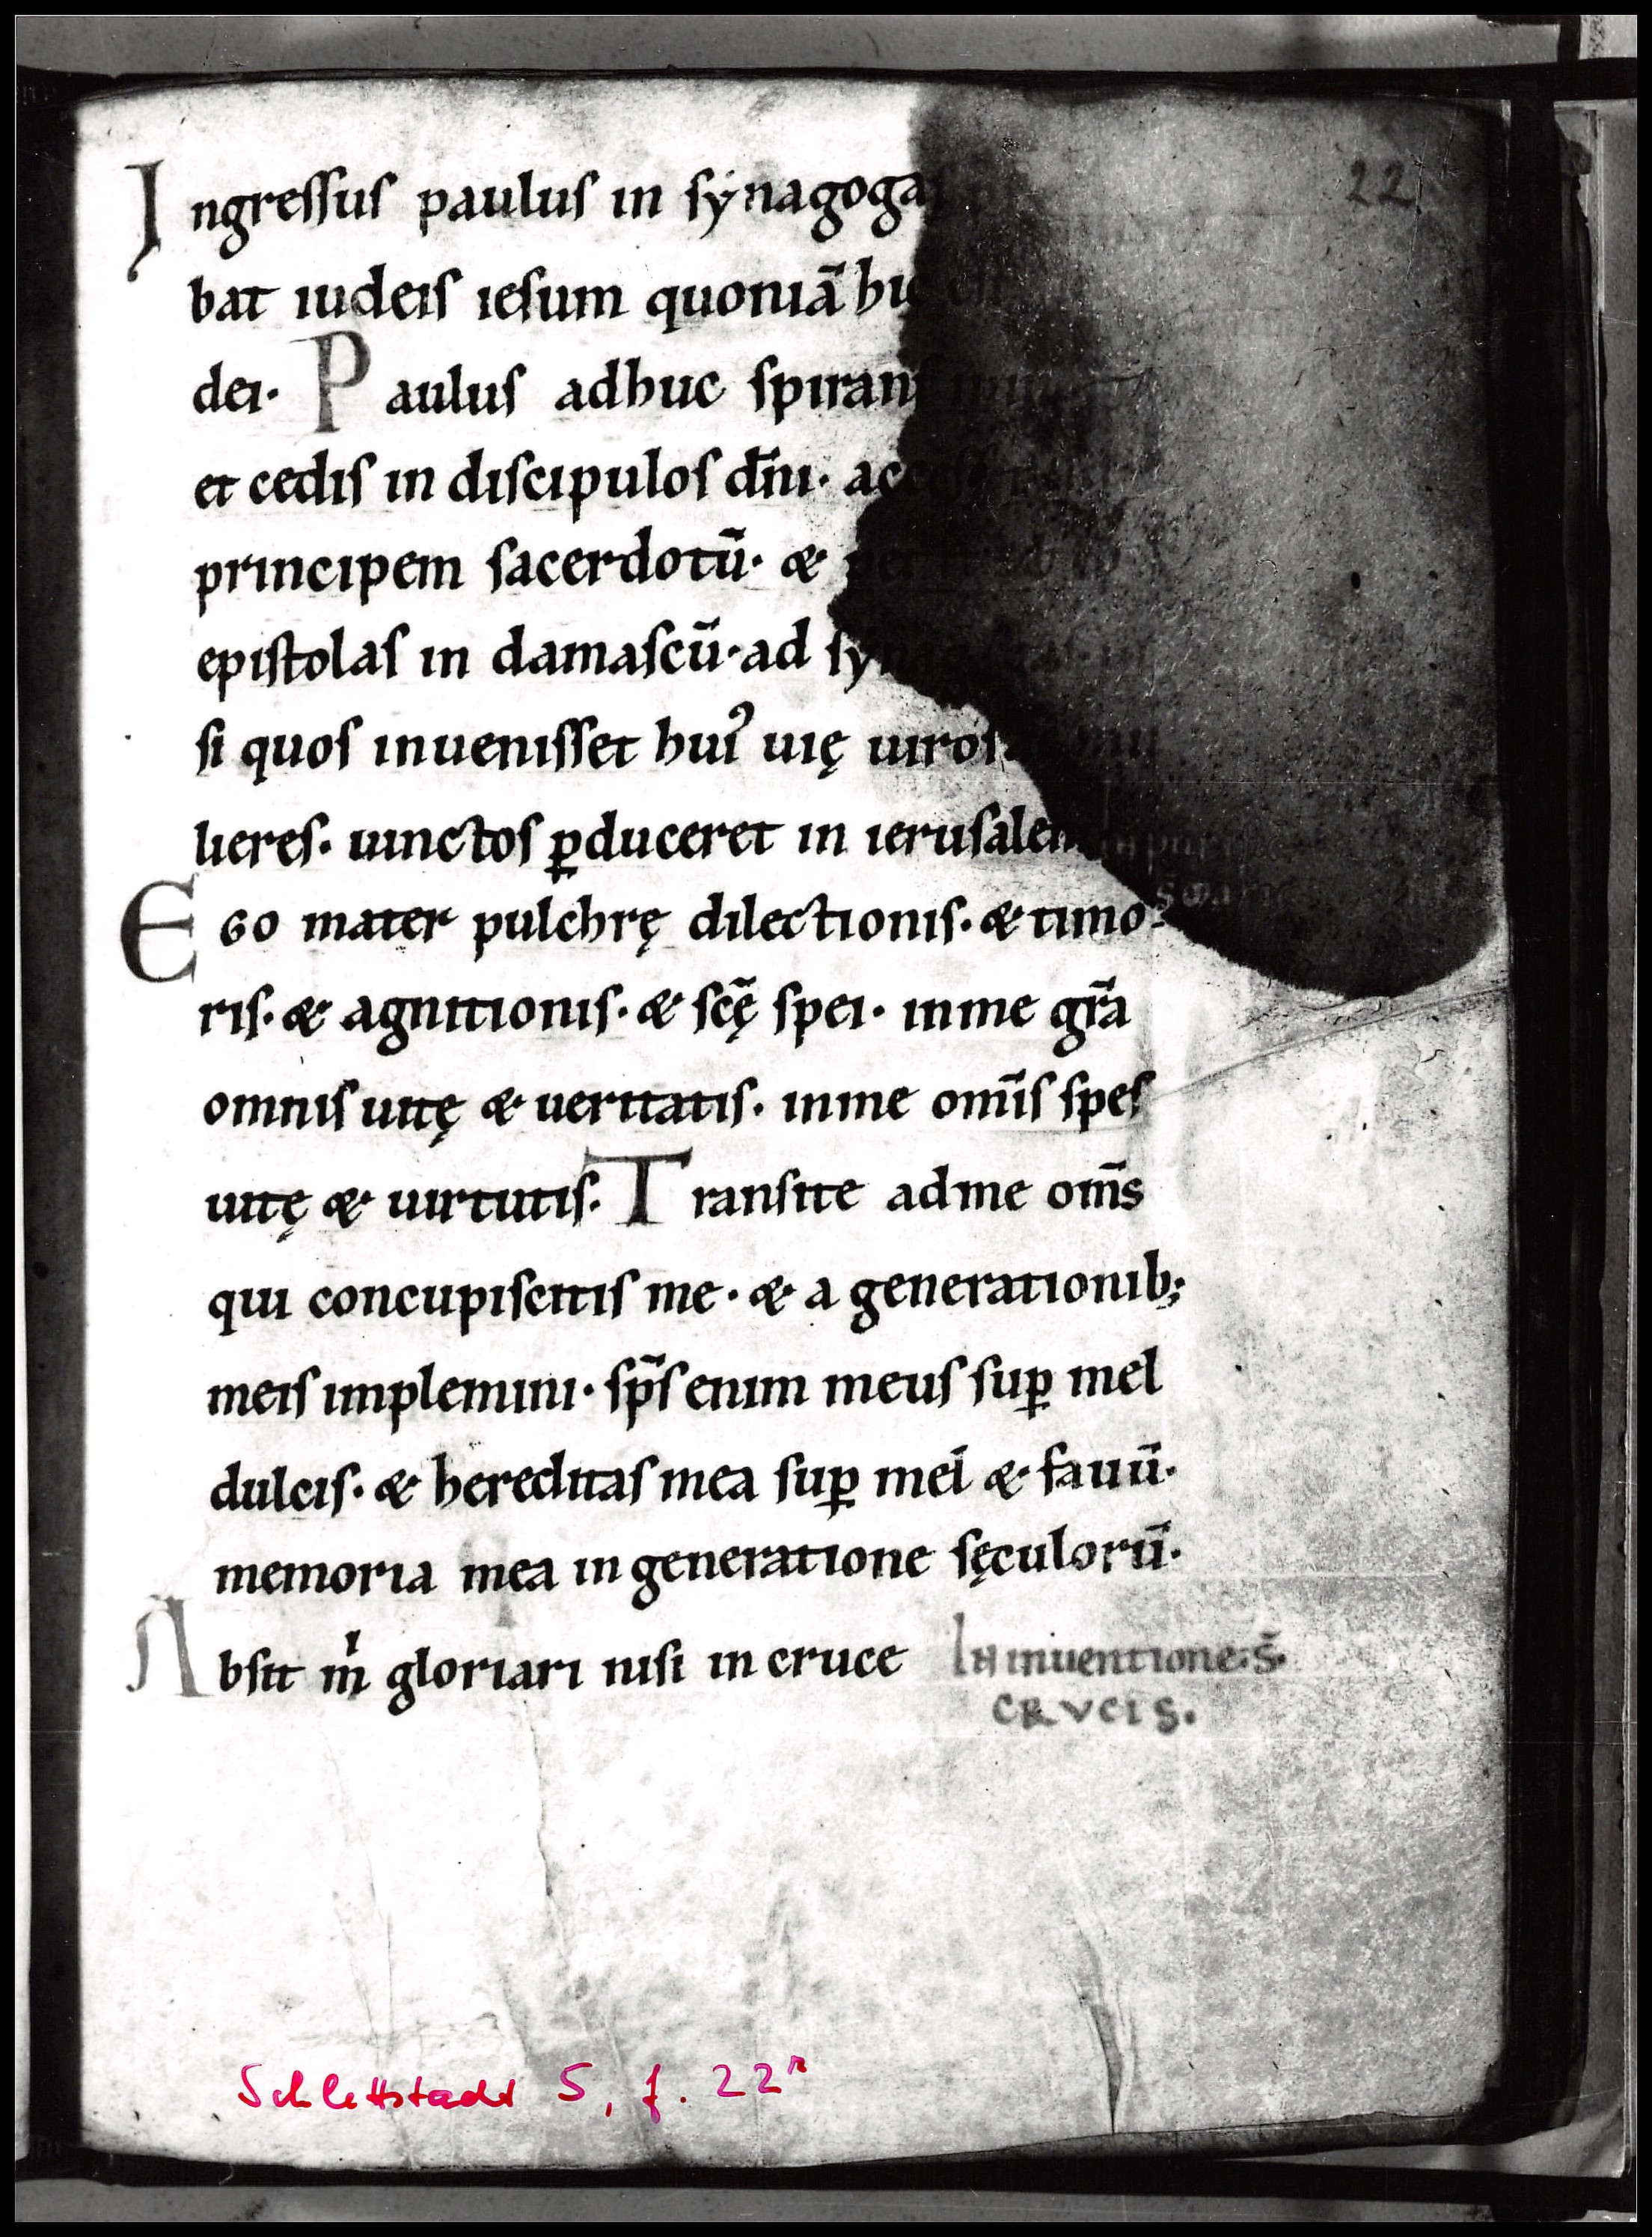 22
Ingreſſuſ pauluſ in ſẏnagogaſ
bat iudeiſ ieſum quoniā hic eſt
dei· Pauluſ adhuc ſpiranſ
et cediſ in diſcipuloſ dn̄i·
principem ſacerdotū· &
epiſtolaſ in damaſcū· ad
ſi quoſ inueniſſet huiꝰ uię uiroſ
liereſ· uinctoſ ꝑduceret in ieruſalem
Ego mater pulchrę dilectioniſ· & timo-
riſ· & agnitioniſ· & ſcę̄ ſpei· in me gr̄a
omniſ uitę & ueritatiſ· in me om̄iſ ſpeſ
uitę & uirtutiſ· Tranſite ad me om̄s
qui concupiſcitiſ me· & a generationib;
meiſ implemini· ſp̄ſ enim meuſ ſuꝑ mel
dulciſ· & hereditaſ mea ſuꝑ mel & fauū·
memoria mea in generatione ſęculorū·
Abſit m̍ gloriari niſi in cruce In inuentione· s̄·
CRVCIS·
Schlettstadt 5, f. 22ʳ